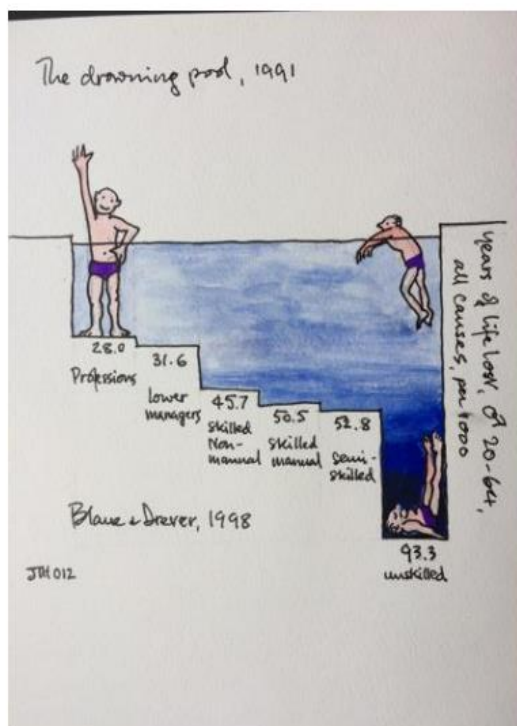 The drowning pool, 1991
28.0
Professions
31.6
lower
managers
45.7
skilled
Non-
manual
50.5
skilled
manual
52.8
Semi-
skilled
93.3
unskilled
years of life lost, ♂ 20-64,
all causes, per 1000
Blane & Drever, 1998
JTH 012